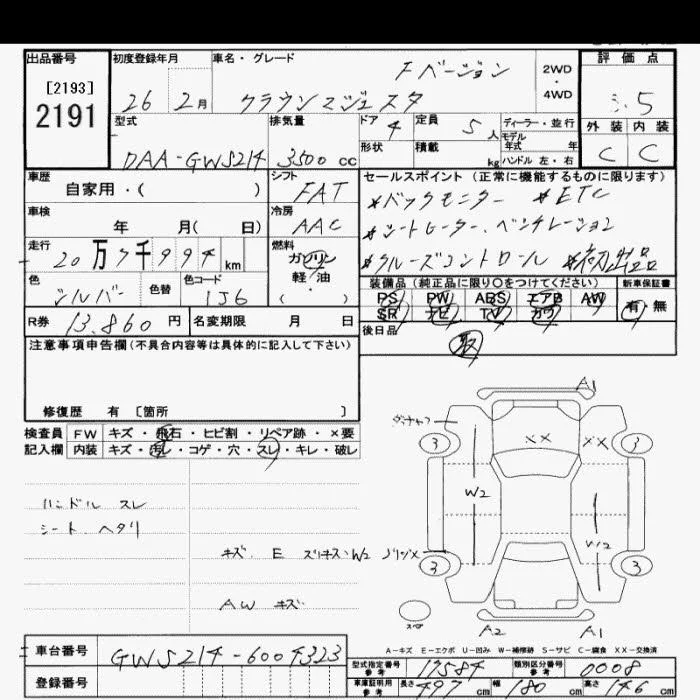 出品番号
[2193]
2191
初度登録年月
26 2月
車名・グレード
Fバージョン
クラウンマジェスタ
2WD
・
4WD
評価点
3.5
外装 内装
C C
型式
DAA-GWS214
排気量
3500 cc
ドア
4
定員
5人
ディーラー・並行
モデル
年式 年
形状
積載
kg
ハンドル 左・右
車歴
自家用・( )
シフト
FAT
セールスポイント (正常に機能するものに限ります)
*バックモニター *ETC
*シートヒーター、ベンチレーション
*クルーズコントロール *初出品
車検
年 月( 日)
冷房
AAC
走行
20万7千994km
燃料
ガソリン
軽・油
( ・ )
色
シルバー
色替
色コード
1J6
装備品 (純正品に限り○をつけてください)
PS PW ABS エアB AW
SR ナビ TV カワ
新車保証書
有・無
R券 13,860 円
名変期限 月 日
後日品
取
注意事項申告欄(不具合内容等は具体的に記入して下さい)
修復歴 有 [箇所 ]
検査員
記入欄
FW キズ・飛石・ヒビ割・リペア跡・×要
内装 キズ・汚レ・コゲ・穴・スレ・キレ・破レ
ハンドル スレ
シート ヘタリ
キズ E スリキズ W2
AW キズ
A1
XX
XX
3
3
W2
W2
3
3
スペア
A2
A1
A-キズ E-エクボ U-凹み W-補修跡 S-サビ C-腐食 XX-交換済
車台番号
GWS214-6004323
登録番号
型式指定番号
参考
17584
類別区分番号
参考
0008
車庫証明用
参考
長さ 497 cm
幅 180 cm
高さ 146 cm